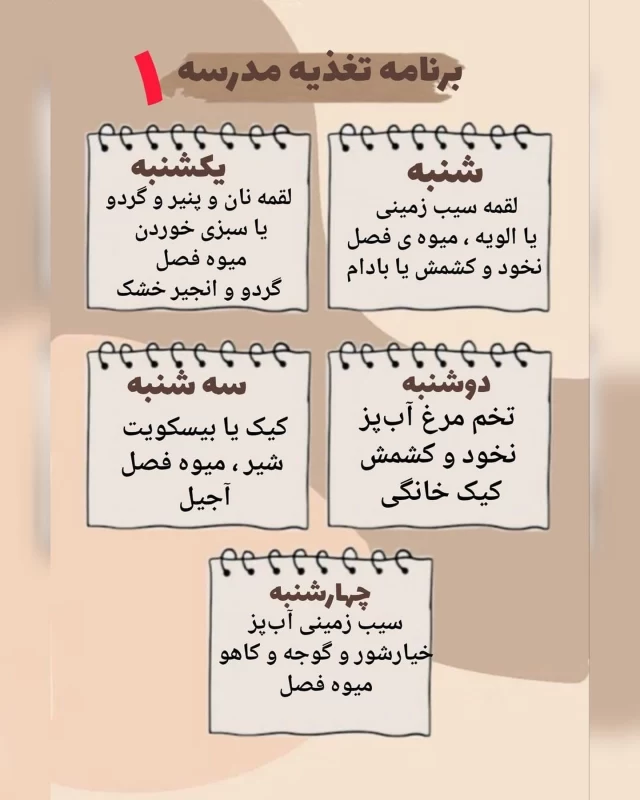 برنامه تغذیه مدرسه ۱
شنبه
لقمه سیب زمینی
یا الویه ، میوه ی فصل
نخود و کشمش یا بادام
یکشنبه
لقمه نان و پنیر و گردو
یا سبزی خوردن
میوه فصل
گردو و انجیر خشک
دوشنبه
تخم مرغ آب‌پز
نخود و کشمش
کیک خانگی
سه شنبه
کیک یا بیسکویت
شیر ، میوه فصل
آجیل
چهارشنبه
سیب زمینی آب‌پز
خیارشور و گوجه و کاهو
میوه فصل